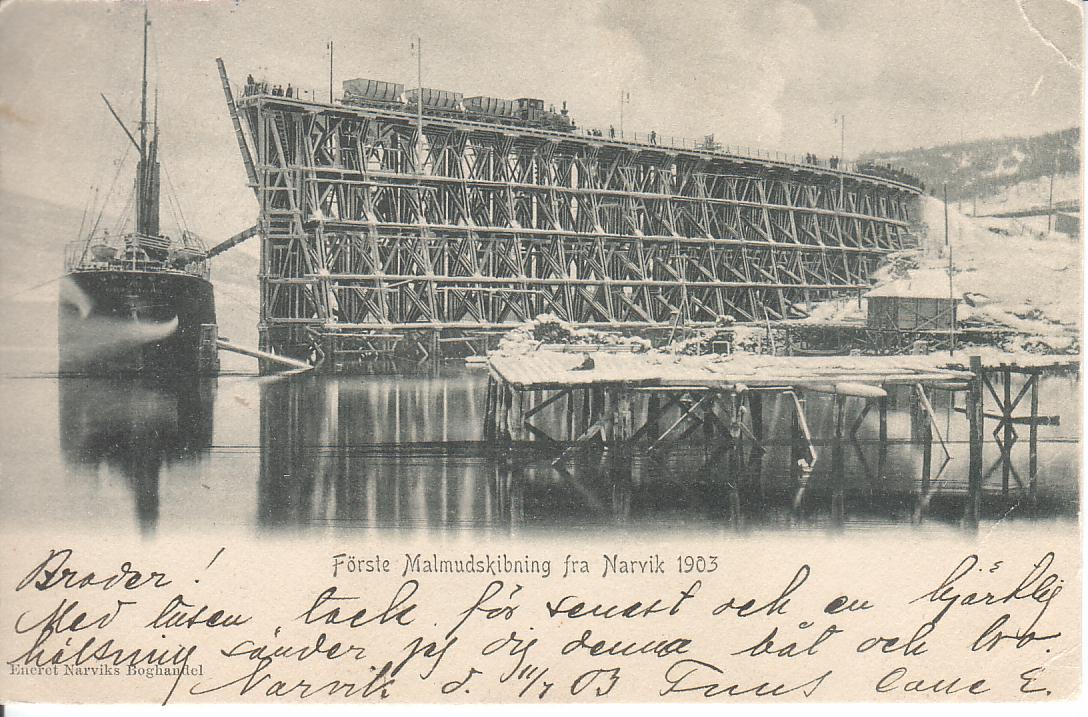 Förste Malmudskibning fra Narvik 1903
Broder!
Med tusen tack för senast och en hjärtlig
hälsning sänder jag dig denna båt och bro.
Eneret Narviks Boghandel
Narvik d. 11/7 03